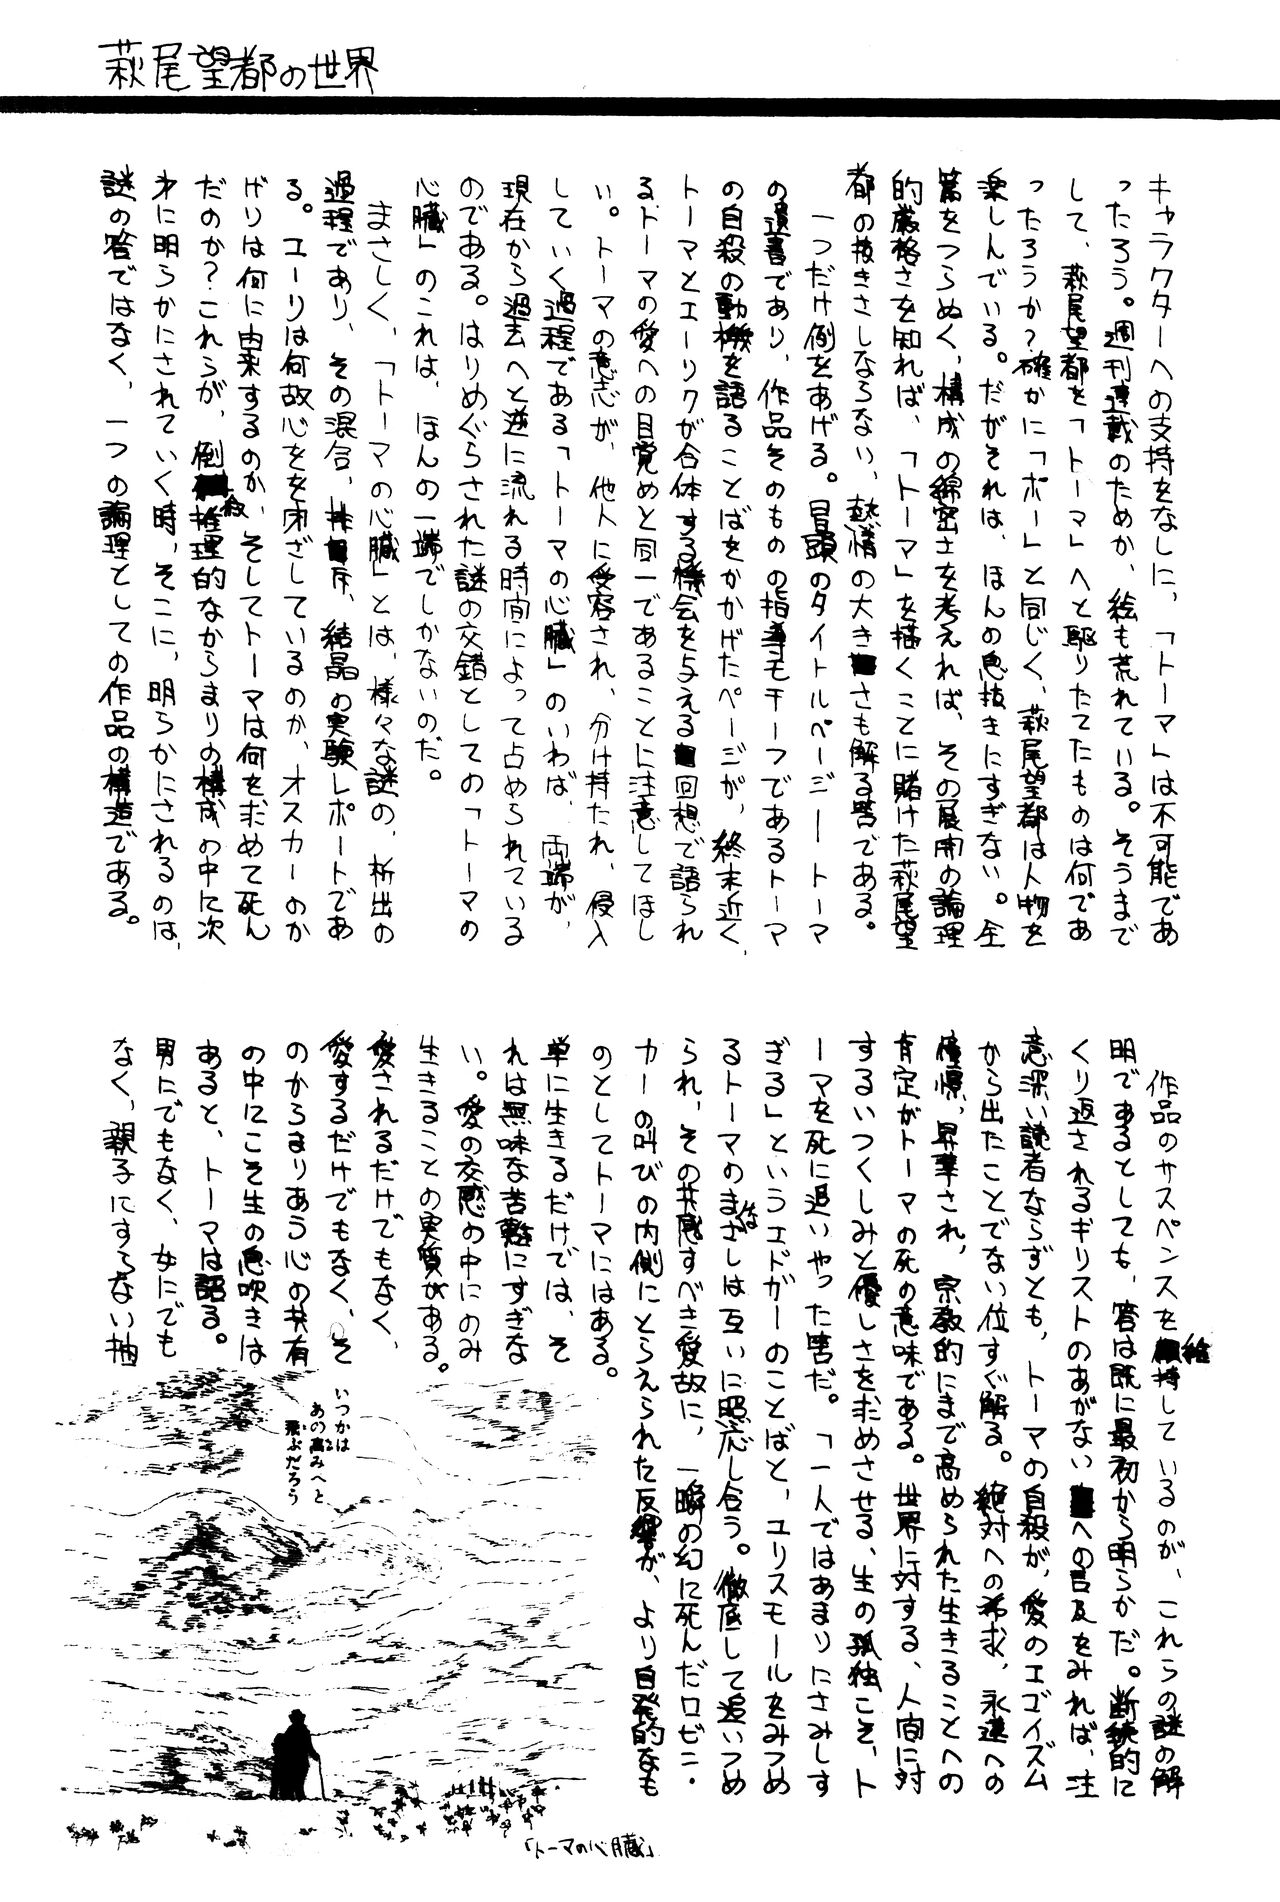 萩尾望都の世界
キャラクターへの支持をなしに、「トーマ」は不可能であ
ったろう。週刊連載のためか、絵も荒れている。そうまで
して、萩尾望都を「トーマ」へと駆りたてたものは何であ
ったろうか？確かに「ポー」と同じく、萩尾望都は人物を
楽しんでいる。だがそれは、ほんの息抜きにすぎない。全
篇をつらぬく、構成の綿密さを考えれば、その展開の論理
的厳格さを知れば、「トーマ」を描くことに賭けた萩尾望
都の抜きさしならない、熱情の大きさも解る筈である。
一つだけ例をあげる。冒頭のタイトルページ ─ トーマ
の遺書であり、作品そのものの指導モチーフであるトーマ
の自殺の動機を語ることばをかかげたページが、終末近く、
トーマとエーリクが合体する機会を与える回想で語られ
るトーマの愛への目覚めと同一であることに注意してほし
い。トーマの意志が、他人に受容され、分け持たれ、侵入
していく過程である「トーマの心臓」のいわば、両端が、
現在から過去へと逆に流れる時間によって占められている
のである。はりめぐらされた謎の交錯としての「トーマの
心臓」のこれは、ほんの一端でしかないのだ。
まさしく、「トーマの心臓」とは、様々な謎の、析出の
過程であり、その混合、排斥、結晶の実験レポートであ
る。ユーリは何故心をを閉ざしているのか、オスカーのか
げりは何に由来するのか、そしてトーマは何を求めて死ん
だのか？これらが、倒叙推理的なからまりの構成の中に次
才に明らかにされていく時、そこに、明らかにされるのは、
謎の答ではなく、一つの論理としての作品の構造である。
作品のサスペンスを維持しているのが、これらの謎の解
明であるとしても、答は既に最初から明らかだ。断続的に
くり返されるキリストのあがないへの言及をみれば、注
意深い読者ならずとも、トーマの自殺が、愛のエゴイズム
から出たことでない位すぐ解る。絶対への希求、永遠への
憧憬、昇華され、宗教的にまで高められた生きることへの
肯定がトーマの死の意味である。世界に対する、人間に対
するいつくしみと優しさを求めさせる、生の孤独こそ、ト
ーマを死に追いやった筈だ。「一人ではあまりにさみしす
ぎる」というエドガーのことばと、ユリスモールをみつめ
るトーマのまなざしは互いに照応し合う。徹底して追いつめ
られ、その共感すべき愛故に、一瞬の幻に死んだロビン・
カーの叫びの内側にとらえられた反響が、より自発的なも
のとしてトーマにはある。
単に生きるだけでは、そ
れは無味な苦難にすぎな
い。愛の交感の中にのみ
生きることの実質がある。
愛されるだけでもなく、
愛するだけでもなく、そ
のからまりあう心の共有
の中にこそ生の息吹きは
あると、トーマは語る。
男にでもなく、女にでも
なく、親子にすらない抽
いつかは
あの高みへと
飛ぶだろう
「トーマの心臓」